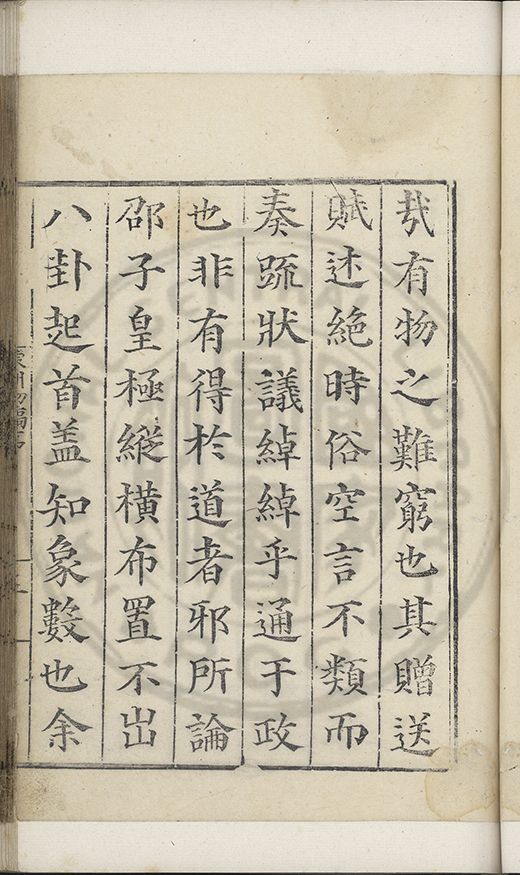 哉有物之難窮也其贈送
賦述絶時俗空言不類而
奏䟽狀議綽綽乎通于政
也非有得於道者邪所論
邵子皇極縱横布置不出
八卦起首盖知象數也余